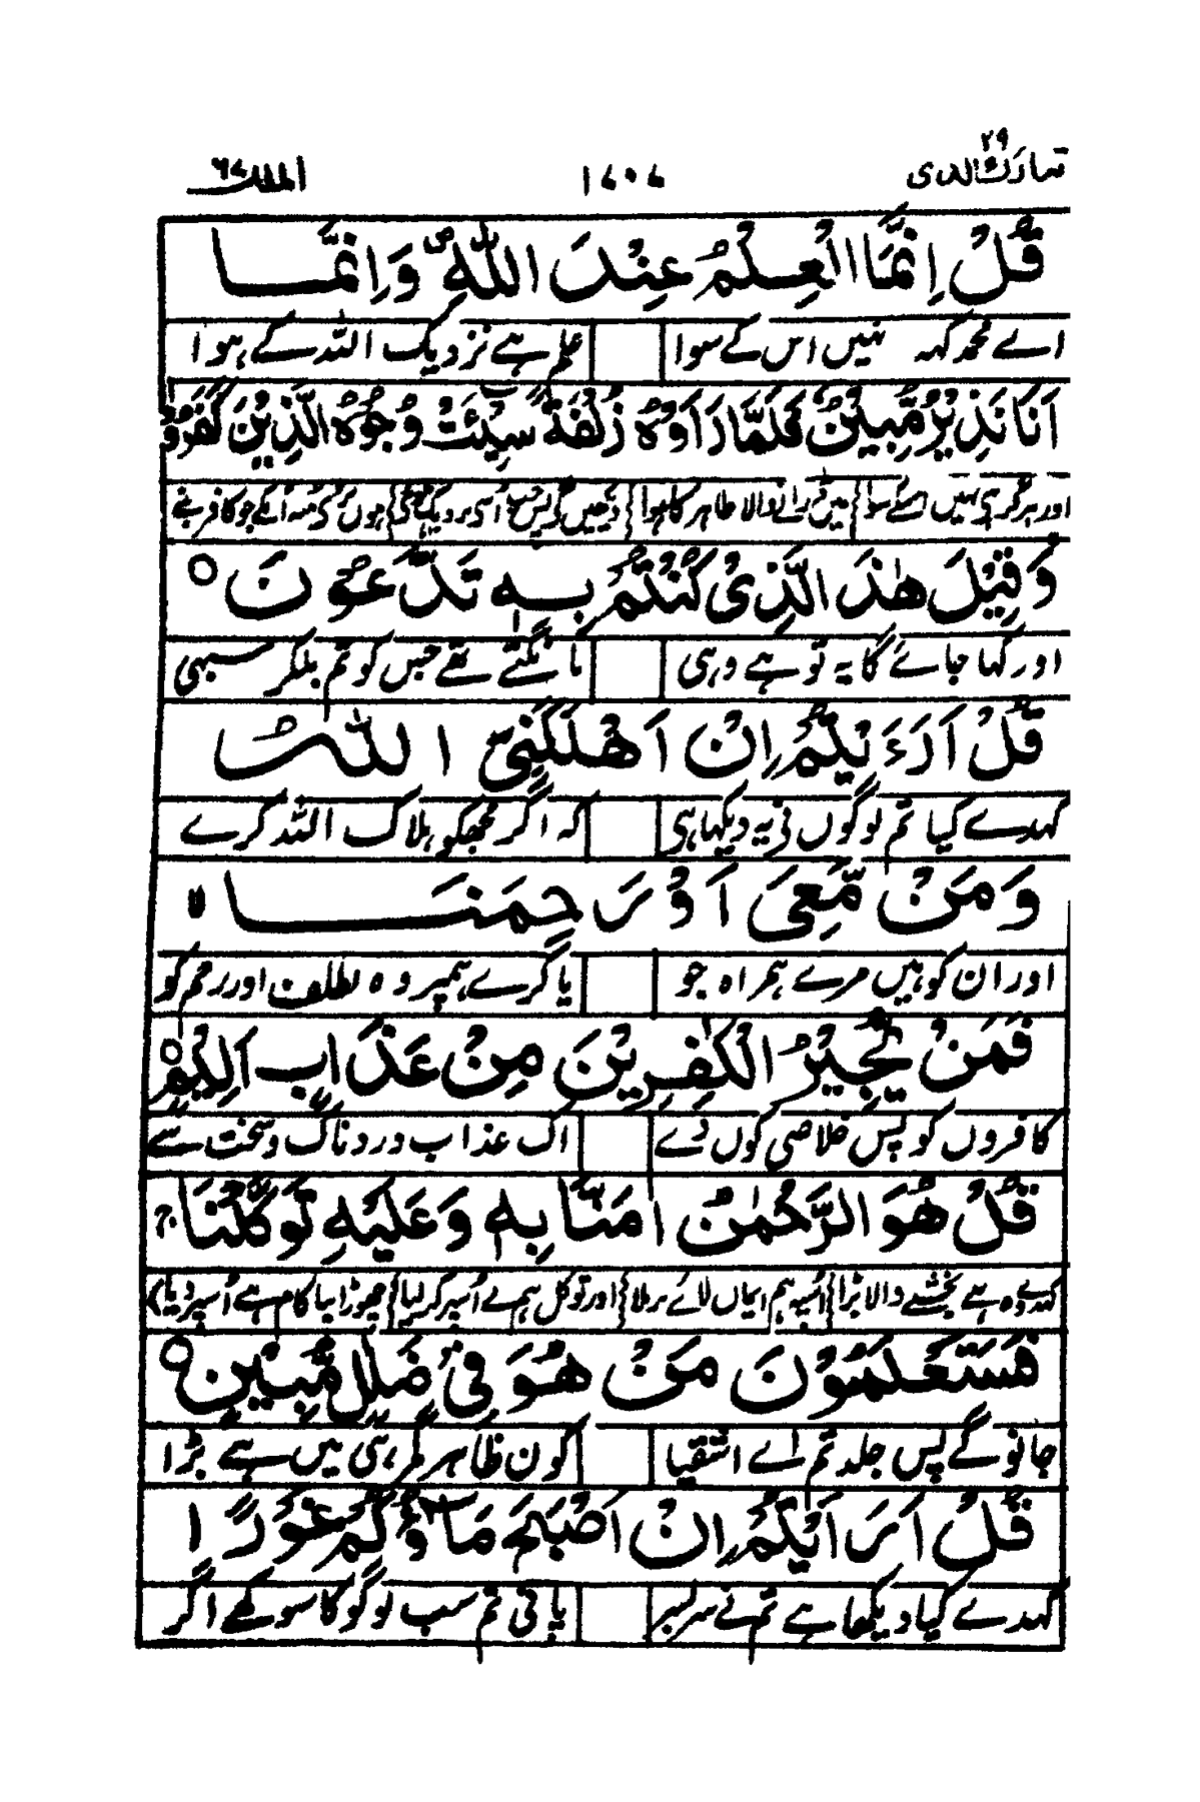 تبارك الذى ٢٩ ١٧٠٧ الملك ٦٧
قُلْ اِنَّمَا الْعِلْمُ عِنْدَ اللّٰهِ ۖ وَاِنَّمَا
اے محمد کہہ نہیں اس کے سوا علم ہے نزدیک اللہ کے ہوا
اَنَا نَذِيْرٌ مُّبِيْنٌ فَلَمَّا رَاَوْهُ زُلْفَةً سِيْٓئَتْ وُجُوْهُ الَّذِيْنَ كَفَرُوْا
اور ہرگز ہی نہیں اسکے سوا میں ڈرانے والا ظاہر کا ہوا دیکھیں گے پس جب
وَقِيْلَ هٰذَ الَّذِىْ كُنْتُمْ بِهٖ تَدَّعُوْنَ ○
اور کہا جائے گا یہ تو ہے وہی مانگتے تھے جس کو تم بلکر سبھی
قُلْ اَرَءَيْتُمْ اِنْ اَهْلَكَنِىَ اللّٰهُ
کہدے کیا تم لوگوں نے یہ دیکھا ہی کہ اگر مجھکو ہلاک اللہ کرے
وَمَنْ مَّعِىَ اَوْ رَحِمَنَا ۙ
اور ان کو ہیں مرے ہمراہ جو یا کرے ہمپر وہ لطف اور رحم کو
فَمَنْ يُّجِيْرُ الْكٰفِرِيْنَ مِنْ عَذَابٍ اَلِيْمٍ ○
کافروں کو پس خلاصی کون دے اک عذاب دردناک و سخت سے
قُلْ هُوَ الرَّحْمٰنُ اٰمَنَّا بِهٖ وَعَلَيْهِ تَوَكَّلْنَا ۚ
کہدے وہ ہے بخشنے والا بڑا اُسپہ ہم ایماں لائے برملا اور توکل ہم نے اُسپر کر لیا چھوڑ اپنا کام ہے اُسپر دیا
فَسَتَعْلَمُوْنَ مَنْ هُوَ فِىْ ضَلٰلٍ مُّبِيْنٍ ○
جانو گے پس جلد تم اے اشقیا کون ظاہر گمرہی میں ہے بڑا
قُلْ اَرَاَيْتُمْ اِنْ اَصْبَحَ مَآؤُكُمْ غَوْرًا
کہدے کیا دیکھا ہے تم نے سربسر پانی تم سب لوگو کا سوکھے اگر